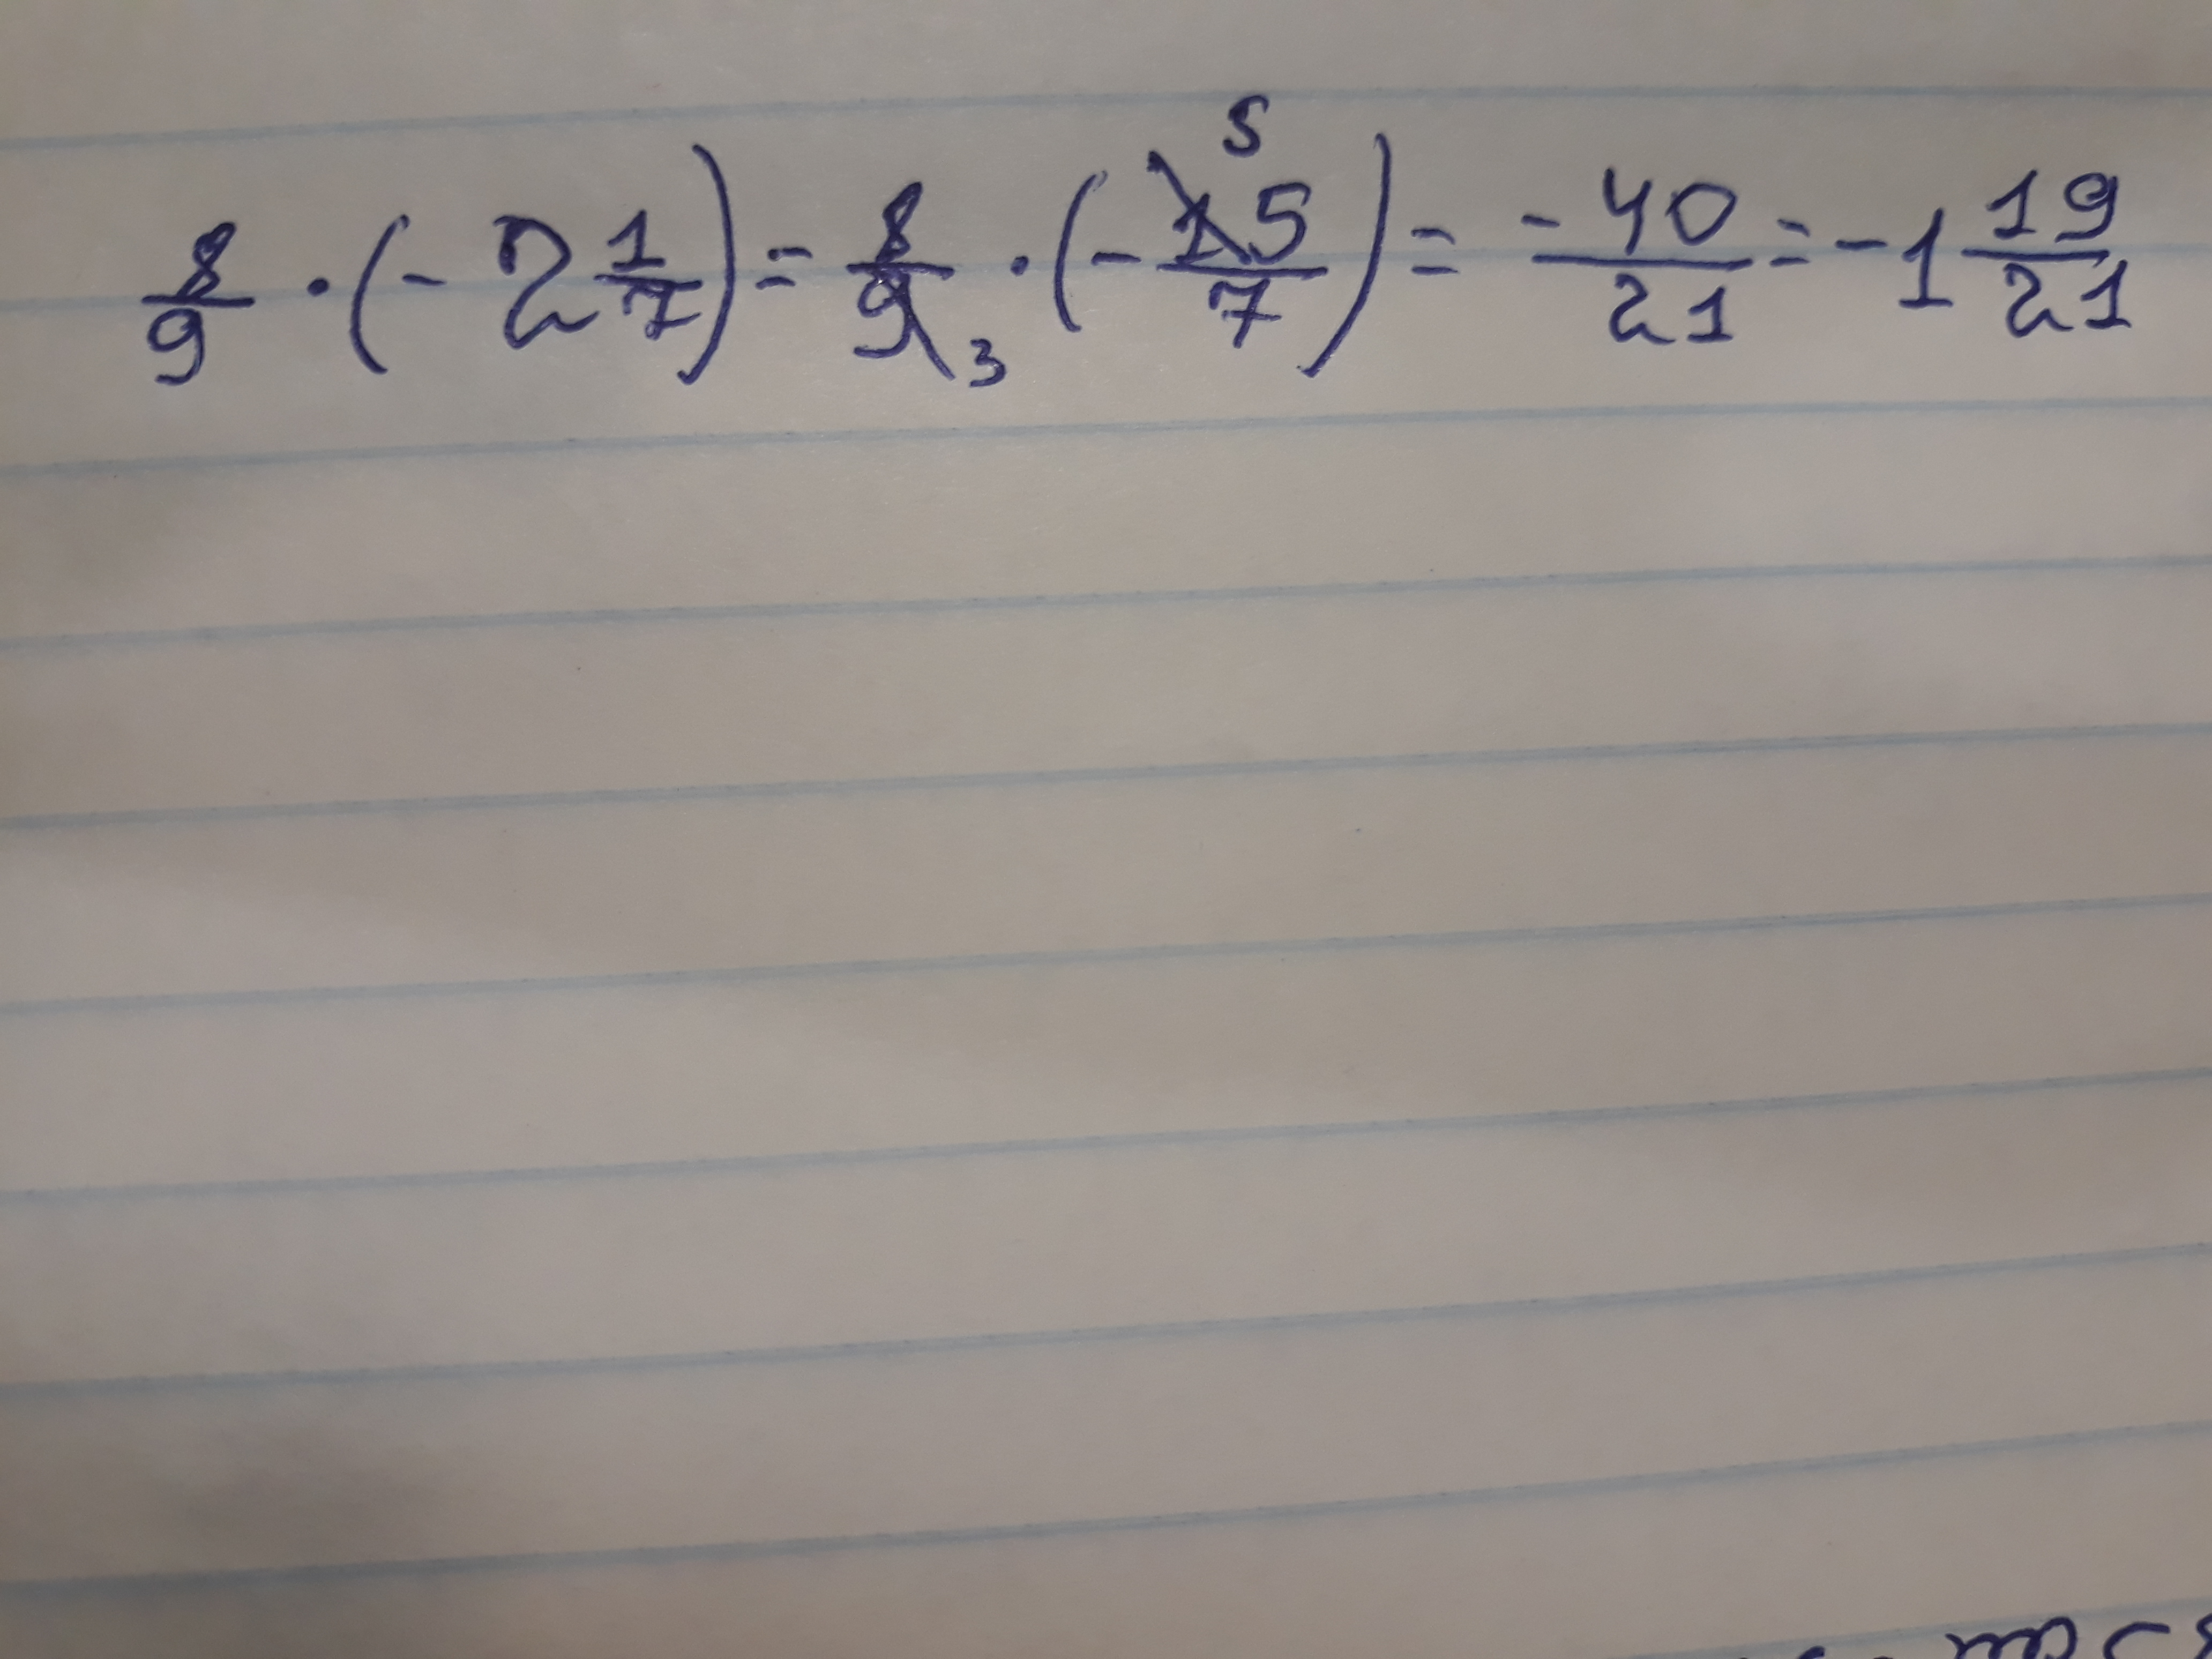 8/9 · (- 2 1/7) = 8/9 3 · (- 15/7 5) = -40/21 = -1 19/21